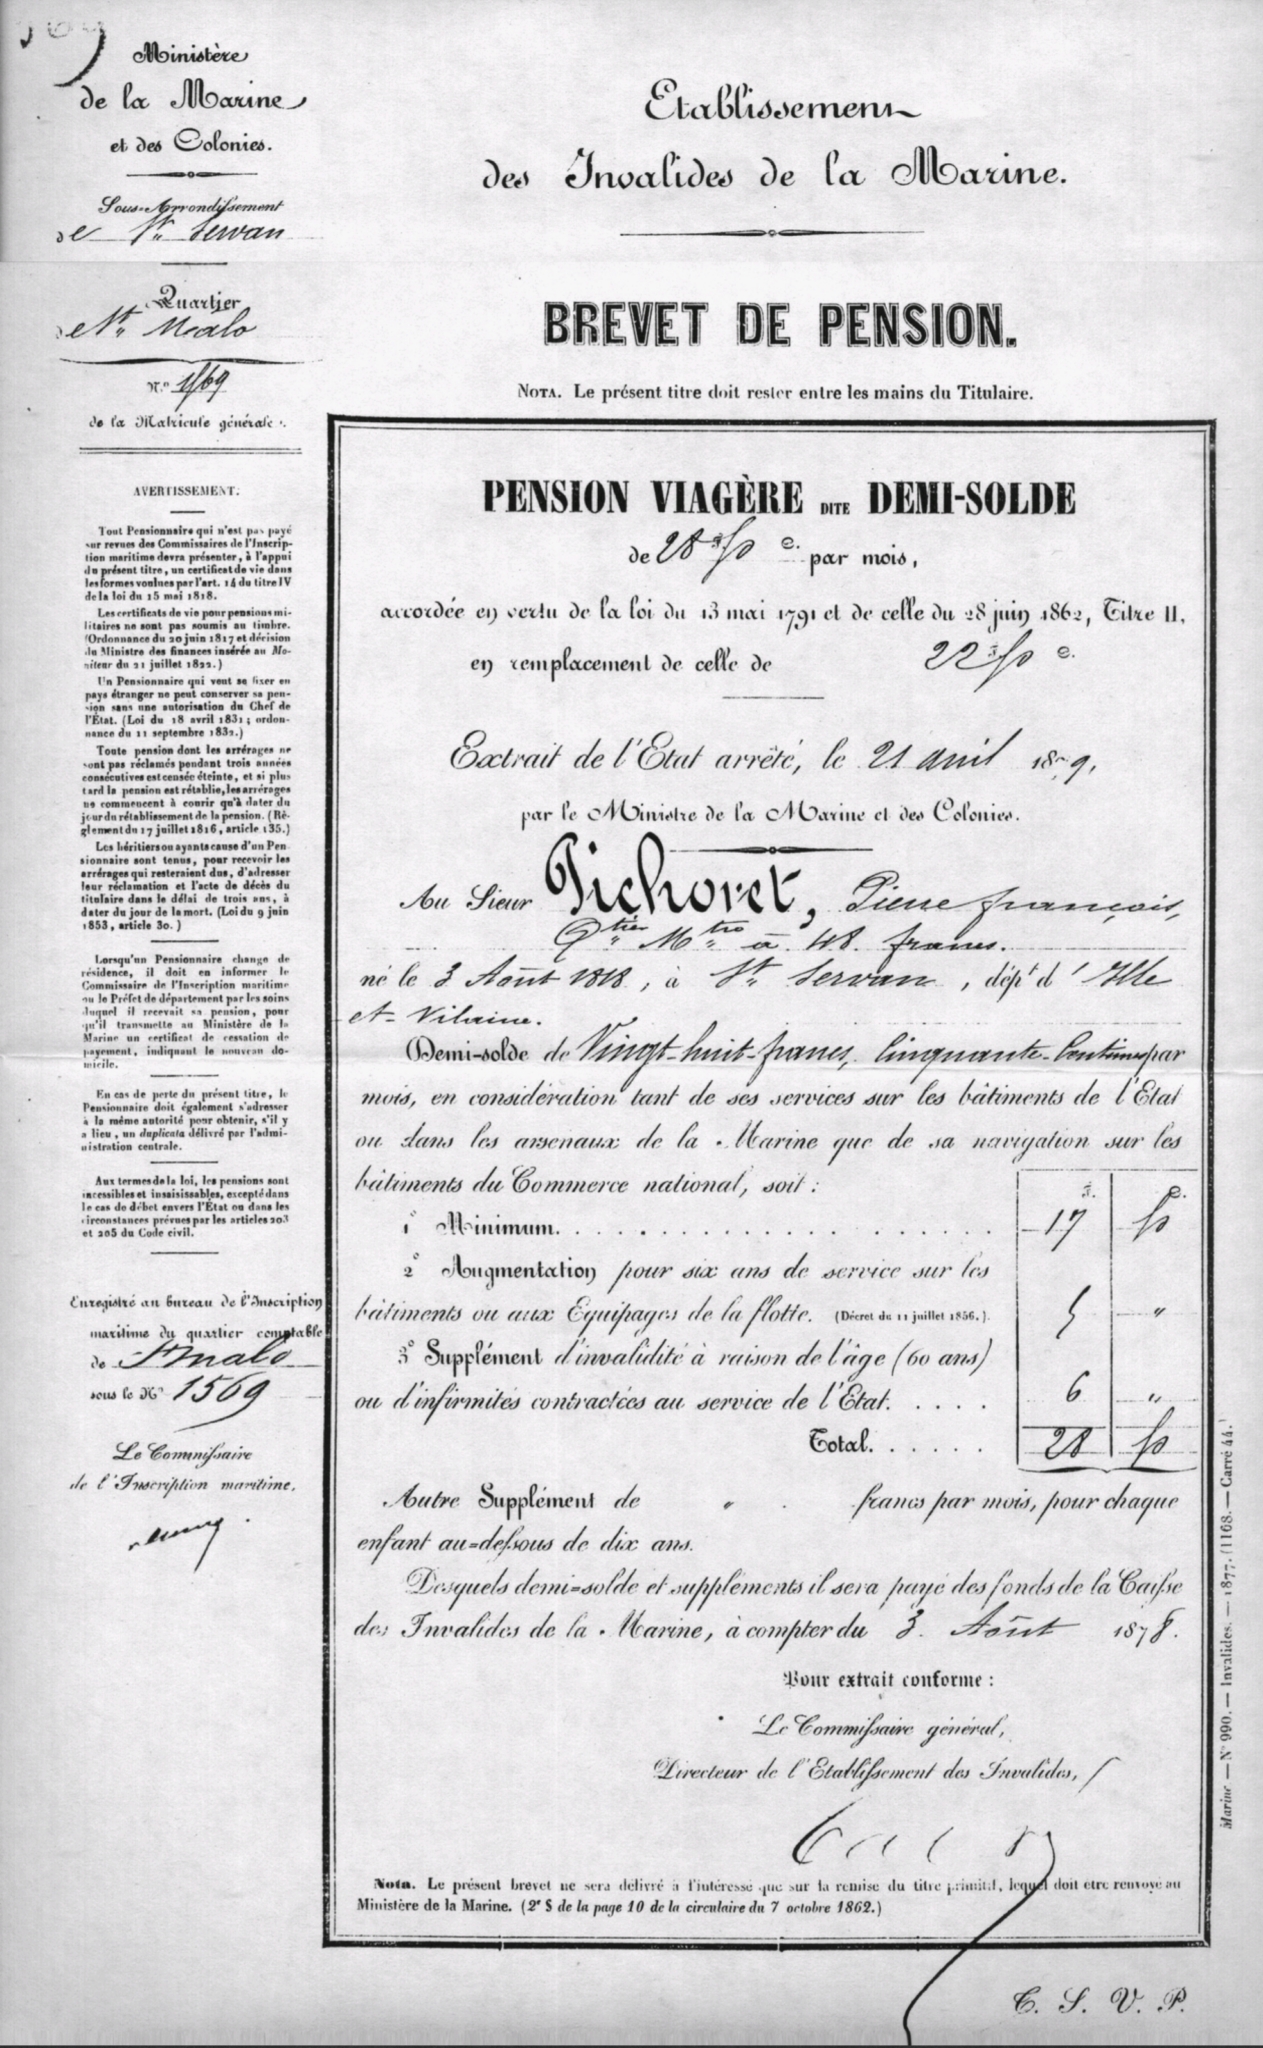 Ministère
de la Marine
et des Colonies.
Sous-Arrondissement
de St. Servan
Quartier
de St. Malo
N.º 1569
de la Matricule générale.
AVERTISSEMENT.
Tout Pensionnaire qui n'est pas payé
sur revues des Commissaires de l'Inscrip-
tion maritime devra présenter, à l'appui
du présent titre, un certificat de vie dans
les formes voulues par l'art. 14 du titre IV
de la loi du 15 mai 1818.
Les certificats de vie pour pensions mi-
litaires ne sont pas soumis au timbre.
(Ordonnance du 20 juin 1817 et décision
du Ministre des finances insérée au Mo-
niteur du 21 juillet 1822.)
Un Pensionnaire qui veut se fixer en
pays étranger ne peut conserver sa pen-
sion sans une autorisation du Chef de
l'État. (Loi du 18 avril 1831; ordon-
nance du 11 septembre 1832.)
Toute pension dont les arrérages ne
sont pas réclamés pendant trois années
consécutives est censée éteinte, et si plus
tard la pension est rétablie, les arrérages
ne commencent à courir qu'à dater du
jour du rétablissement de la pension. (Rè-
glement du 17 juillet 1816, article 135.)
Les héritiers ou ayants cause d'un Pen-
sionnaire sont tenus, pour recevoir les
arrérages qui resteraient dus, d'adresser
leur réclamation et l'acte de décès du
titulaire dans le délai de trois ans, à
dater du jour de la mort. (Loi du 9 juin
1853, article 30.)
Lorsqu'un Pensionnaire change de
résidence, il doit en informer le
Commissaire de l'Inscription maritime
ou le Préfet de département par les soins
duquel il recevait sa pension, pour
qu'il transmette au Ministère de la
Marine un certificat de cessation de
payement, indiquant le nouveau do-
micile.
En cas de perte du présent titre, le
Pensionnaire doit également s'adresser
à la même autorité pour obtenir, s'il y
a lieu, un duplicata délivré par l'admi-
nistration centrale.
Aux termes de la loi, les pensions sont
incessibles et insaisissables, excepté dans
le cas de débet envers l'État ou dans les
circonstances prévues par les articles 203
et 205 du Code civil.
Enregistré au bureau de l'Inscription
maritime du quartier comptable
de St malo
sous le N.º 1569
Le Commissaire
de l'Inscription maritime.
Etablissement
des Invalides de la Marine.
BREVET DE PENSION.
NOTA. Le présent titre doit rester entre les mains du Titulaire.
PENSION VIAGÈRE DITE DEMI-SOLDE
de 28 f 50 c. par mois,
accordée en vertu de la loi du 13 mai 1791 et de celle du 28 juin 1862, Titre II,
en remplacement de celle de 22 f 50 c.
Extrait de l'Etat arrêté, le 21 avril 1879,
par le Ministre de la Marine et des Colonies.
Au Sieur Pichoret, Pierre françois,
Qtier Mtre à 48 francs.
né le 3 Août 1818, à St. Servan, dépt d'Ille
et Vilaine.
Demi-solde de Vingt-huit-francs, Cinquante-Centimes par
mois, en considération tant de ses services sur les bâtiments de l'Etat
ou dans les arsenaux de la Marine que de sa navigation sur les
bâtiments du Commerce national, soit: f. c.
1º Minimum. . . . . . . . . . . . . . 17 50
2º Augmentation pour six ans de service sur les
bâtiments ou aux Equipages de la flotte. (Décret du 11 juillet 1856.). 5 "
3º Supplément d'invalidité à raison de l'âge (60 ans)
ou d'infirmités contractées au service de l'Etat. . . . . 6 "
Total. . . . . . 28 50
Autre Supplément de " francs par mois, pour chaque
enfant au-dessous de dix ans.
Desquels demi-solde et suppléments il sera payé des fonds de la Caisse
des Invalides de la Marine, à compter du 3 Août 1878.
Pour extrait conforme:
Le Commissaire général,
Directeur de l'Etablissement des Invalides,
Nota. Le présent brevet ne sera délivré à l'intéressé que sur la remise du titre primitif, lequel doit être renvoyé au
Ministère de la Marine. (2e § de la page 10 de la circulaire du 7 octobre 1862.)
T. S. V. P.
Marine. — N° 990. — Invalides. — 1877. (1168. — Carré 44.)